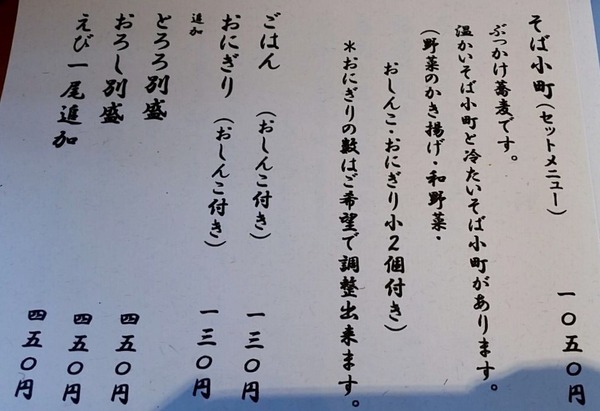 そば小町(セットメニュー) 一〇五〇円
ぶっかけ蕎麦です。
温かいそば小町と冷たいそば小町があります。
(野菜のかき揚げ・和野菜・
おしんこ・おにぎり小2個付き)
*おにぎりの数はご希望で調整出来ます。
ごはん (おしんこ付き) 一三〇円
おにぎり (おしんこ付き) 一三〇円
追加
とろろ別盛 四五〇円
おろし別盛 四五〇円
えび一尾追加 四五〇円